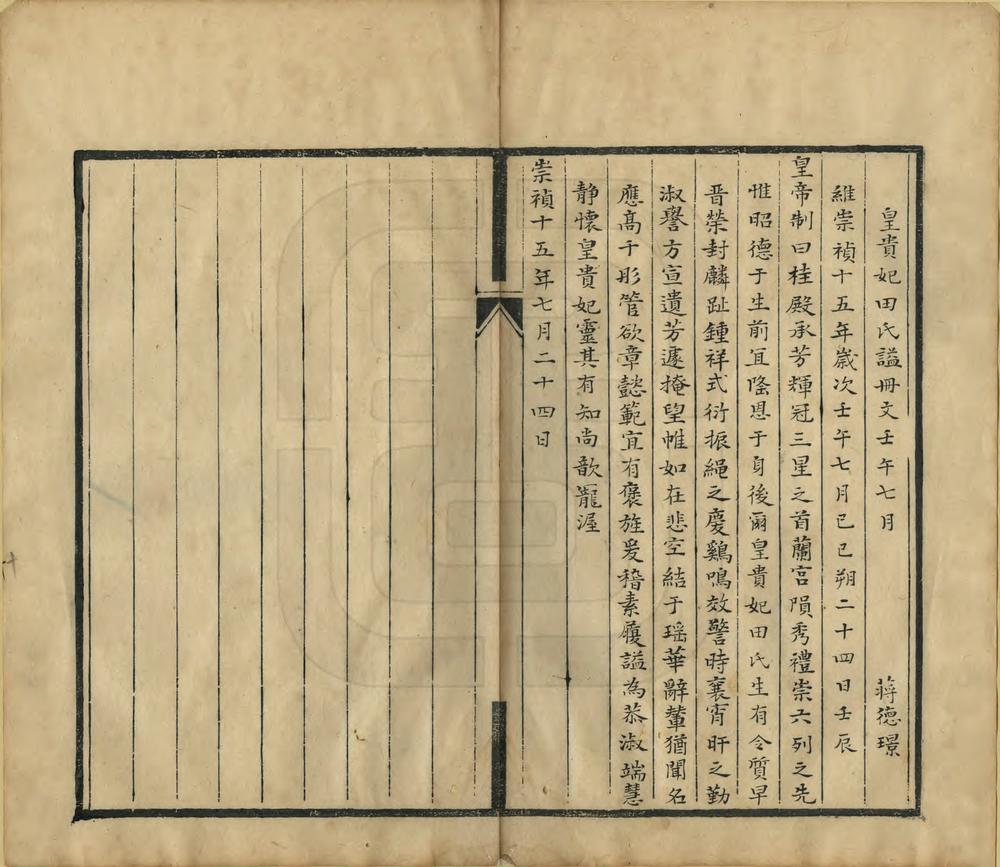 皇貴妃田氏謚冊文壬午七月 蔣德璟
維崇禎十五年歲次壬午七月己巳朔二十四日壬辰
皇帝制曰桂殿承芳輝冠三星之首蘭宮隕秀禮崇六列之先
惟昭德于生前宜隆恩于身後爾皇貴妃田氏生有令質早
晉榮封麟趾鍾祥式衍振繩之慶鷄鳴效警時襄宵旰之勤
淑譽方宣遺芳遽掩望帷如在悲空結于瑶華辭輦猶聞名
應高于彤管欲章懿範宜有褒旌爰稽素履謚為恭淑端慧
靜懷皇貴妃靈其有知尚歆寵渥
崇禎十五年七月二十四日